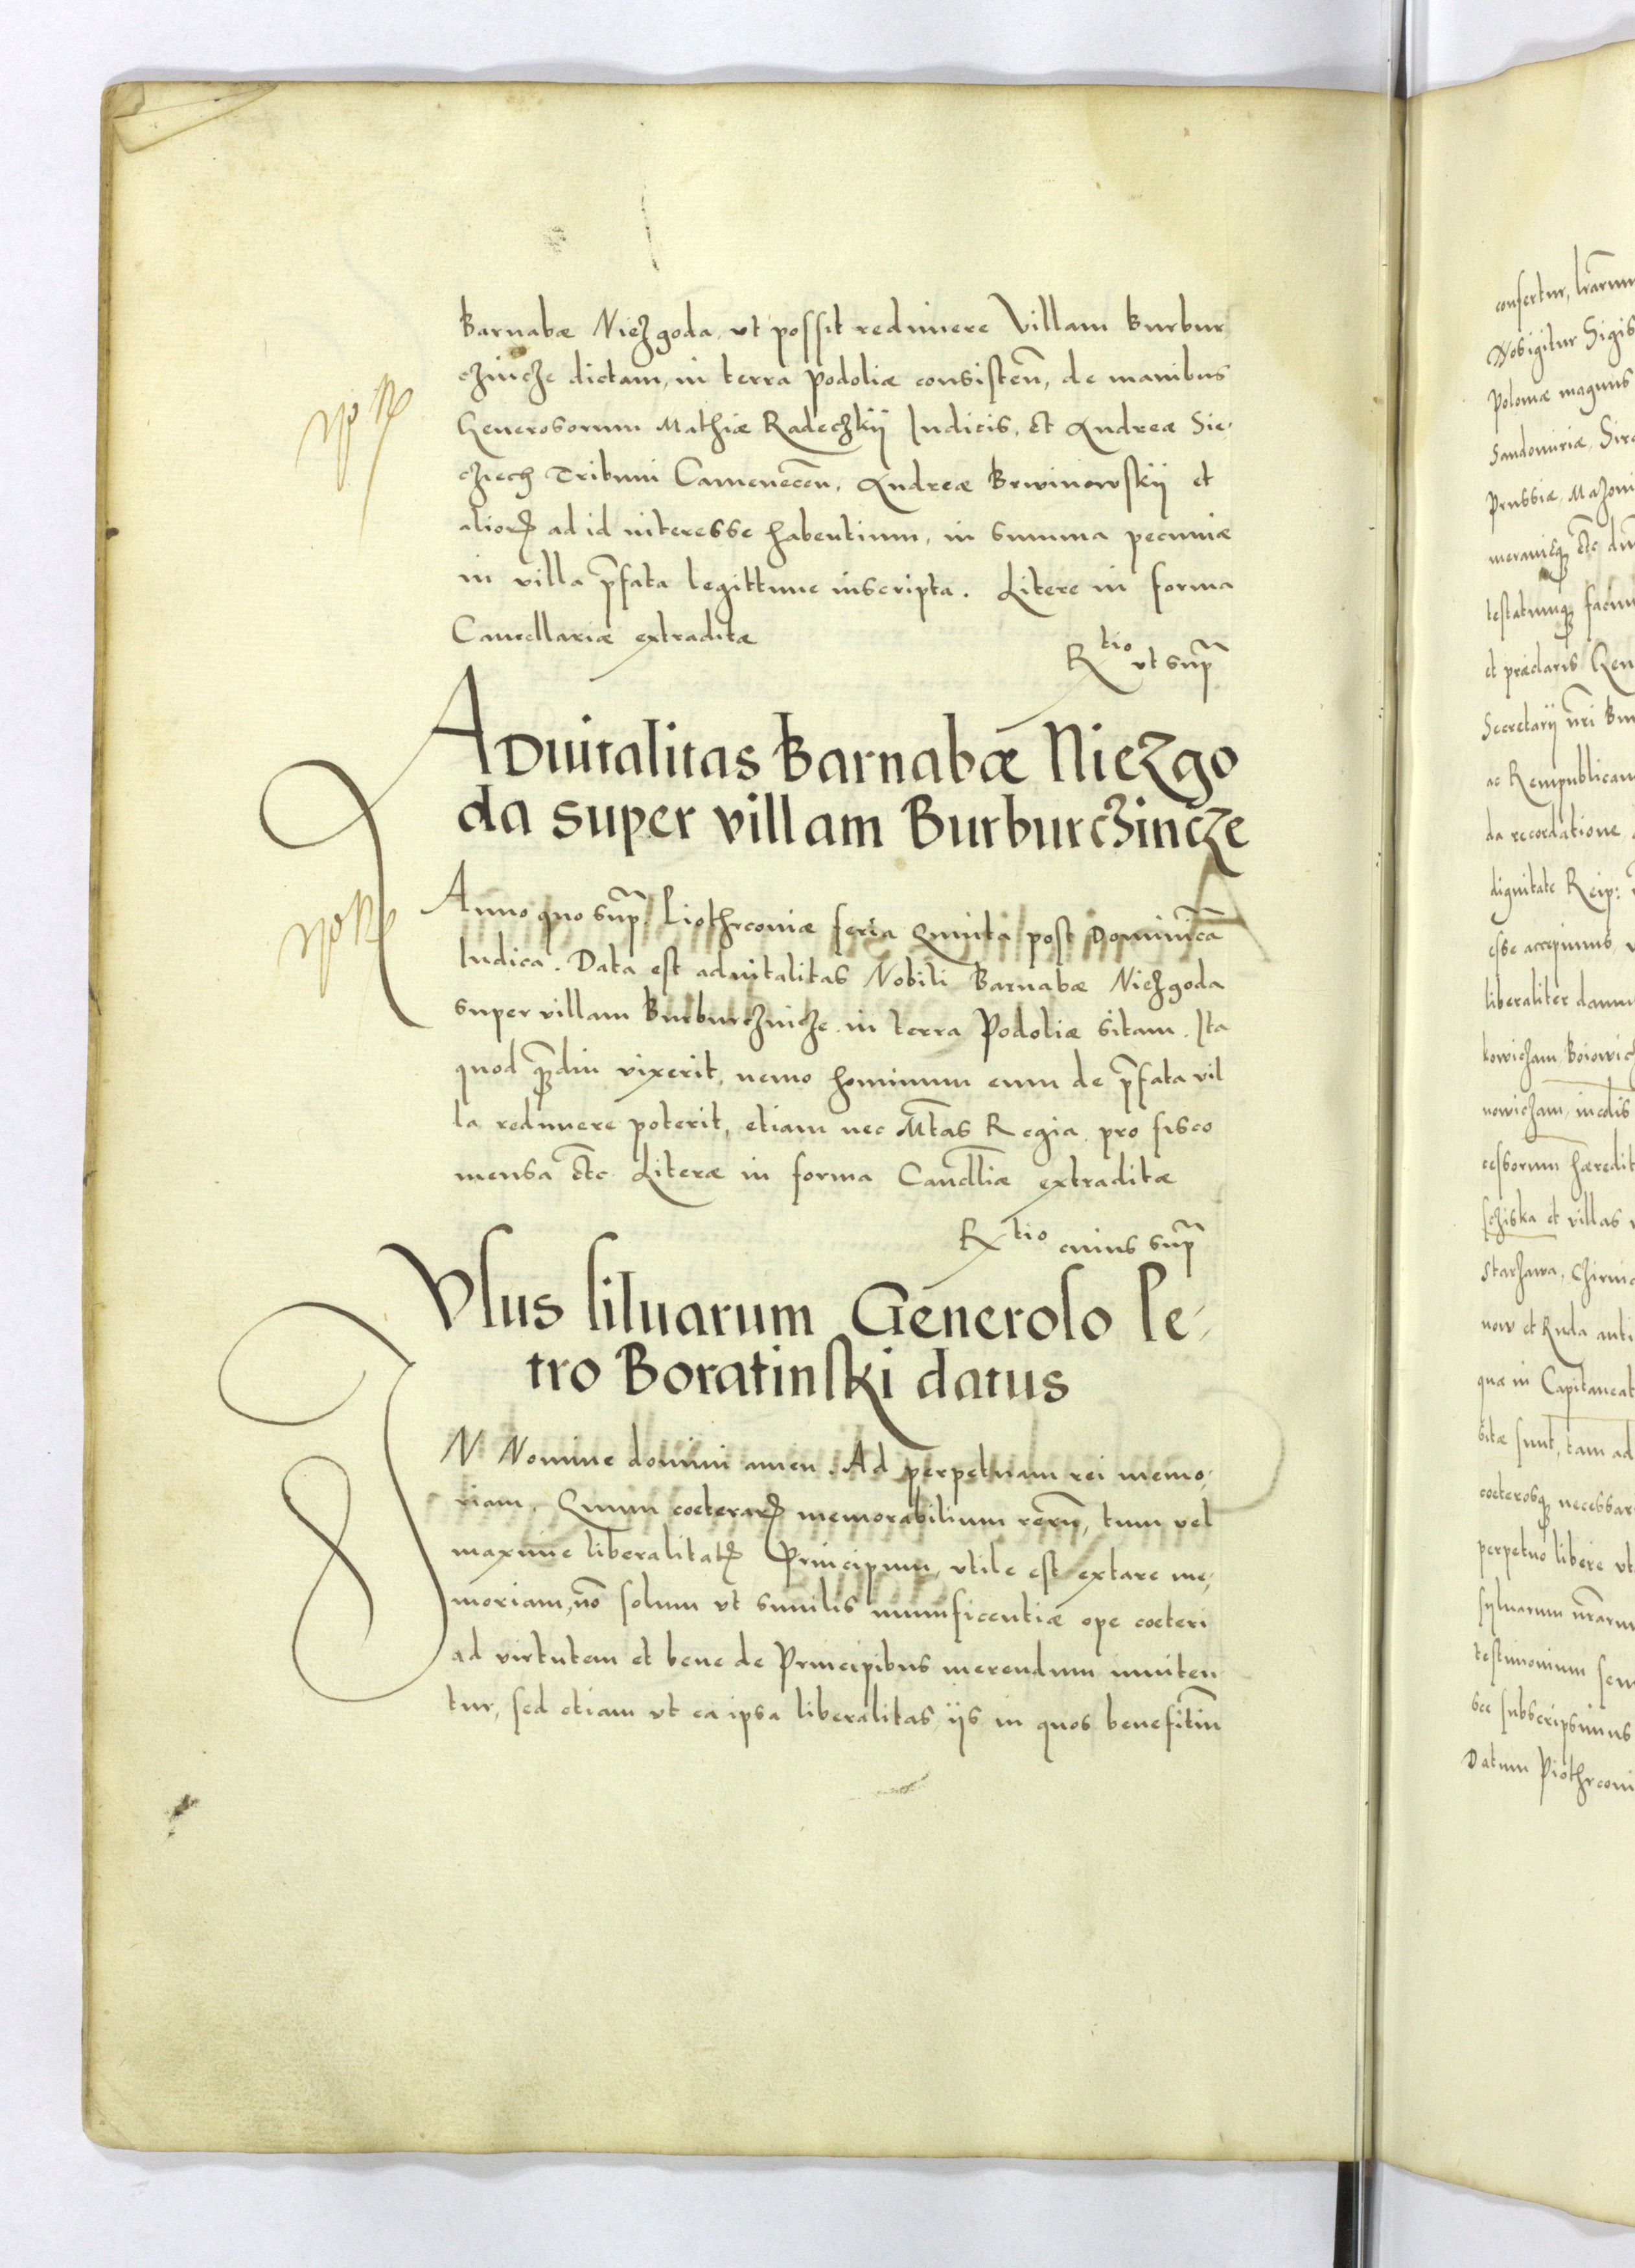 Barnabæ Niezgoda, vt possit redimere Villam Burbur
czincze dictam, in terra Podoliæ consisteñ, de manibus
Generosorum Mathiæ Radeczkij Iudicis, et Andreæ Sie-
cziech Tribuni Camenecen̄, Andreæ Brwinowskij et
alioꝝ ad id interesse habentium, in summa pecuniæ
in villa p̄fata legittime inscripta. Litere in forma
Cancellariæ extraditæ
R tio vt sup̃
ADuitalitas Barnabæ Niezgo
da super villam Burburczincze
Anno quo sup̃. Piothrconiæ feria Quinta post Dominicā
Iudica. Data est aduitalitas Nobili Barnabæ Niezgoda
super villam Burburczincze in terra Podoliæ sitam. Ita
quod ꝙ̃diu vixerit, nemo hominum eum de p̄fata vil
la redimere poterit, etiam nec M̃tas Regia pro fisco
mensa etc̃ Literæ in forma Canc̃lliæ extraditæ
R tio cuius sup̃
Vsus siluarum Generoso Pe-
tro Boratinski datus
IN Nomine domini amen. Ad perpetuam rei memo-
riam. Quum coeteraꝝ memorabilium rerū, tum vel
maxime liberalitatꝫ Principum, vtile est extare me-
moriam, nō solum vt similis munificentiæ ope coeteri
ad virtutem et bene de Principibus merendum inuiten
tur, sed etiam vt ea ipsa liberalitas ijs in quos benefitiū
Nos igitur Sigis
Poloniæ magnus
Sandomiriæ, Sira
Prussiæ, Mazoui
et præclaris Gen
Secretarij nr̃i
ac Rempublicam
da recordatione
dignitate Reip:
esse accepimus
liberaliter
cessorum hæredit
et villas
Starzawa,
now et Ruda anti
quæ in Capitaneat
sitæ sunt, tam ad
coeterosqꝫ necessar
perpetuo libere vt
syluarum nr̃arum
testimonium
subscripsimus
Datum Piothrconi